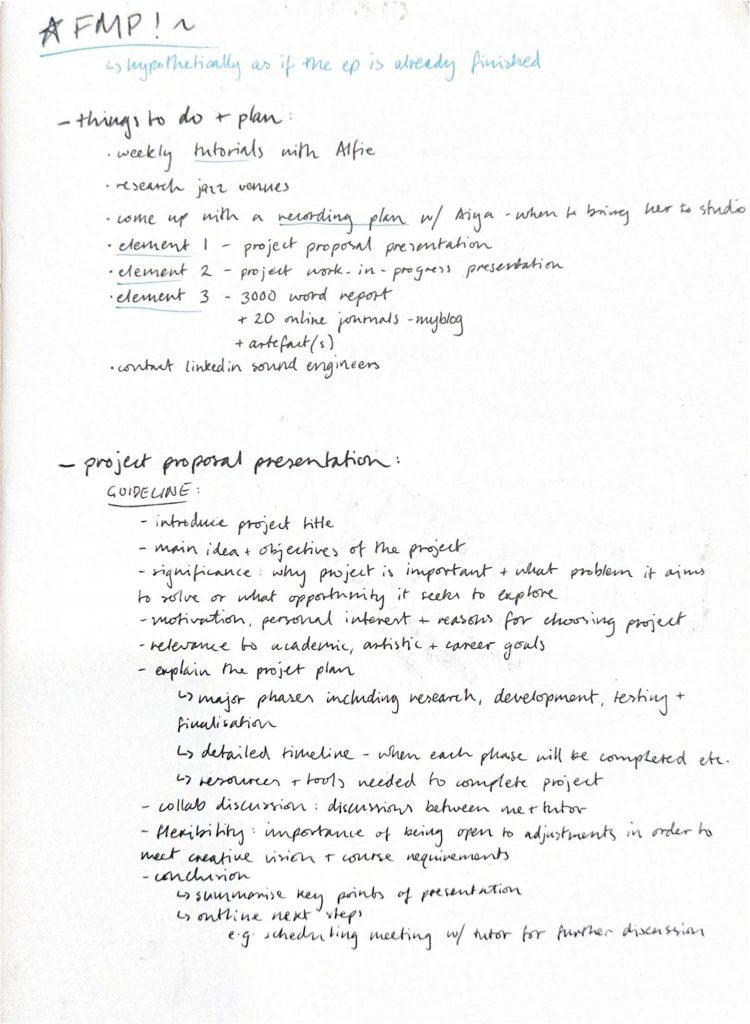 ☆ FMP! ~
↳ hypothetically as if the ep is already finished
- things to do + plan:
· weekly tutorials with Alfie
· research jazz venues
· come up with a recording plan w/ Aiya - when to bring her to studio
· element 1 - project proposal presentation
· element 2 - project work-in-progress presentation
· element 3 - 3000 word report
+ 20 online journals - myblog
+ artefact(s)
· contact linkedin sound engineers
- project proposal presentation:
GUIDELINE:
- introduce project title
- main idea + objectives of the project
- significance: why project is important + what problem it aims
to solve or what opportunity it seeks to explore
- motivation, personal interest + reasons for choosing project
- relevance to academic, artistic + career goals
- explain the projet plan
↳ major phases including research, development, testing +
finalisation
↳ detailed timeline - when each phase will be completed etc.
↳ resources + tools needed to complete project
- collab discussion: discussions between me + tutor
- flexibility: importance of being open to adjustments in order to
meet creative vision + course requirements
- conclusion
↳ summarise key points of presentation
↳ outline next steps
e.g. scheduling meeting w/ tutor for further discussion